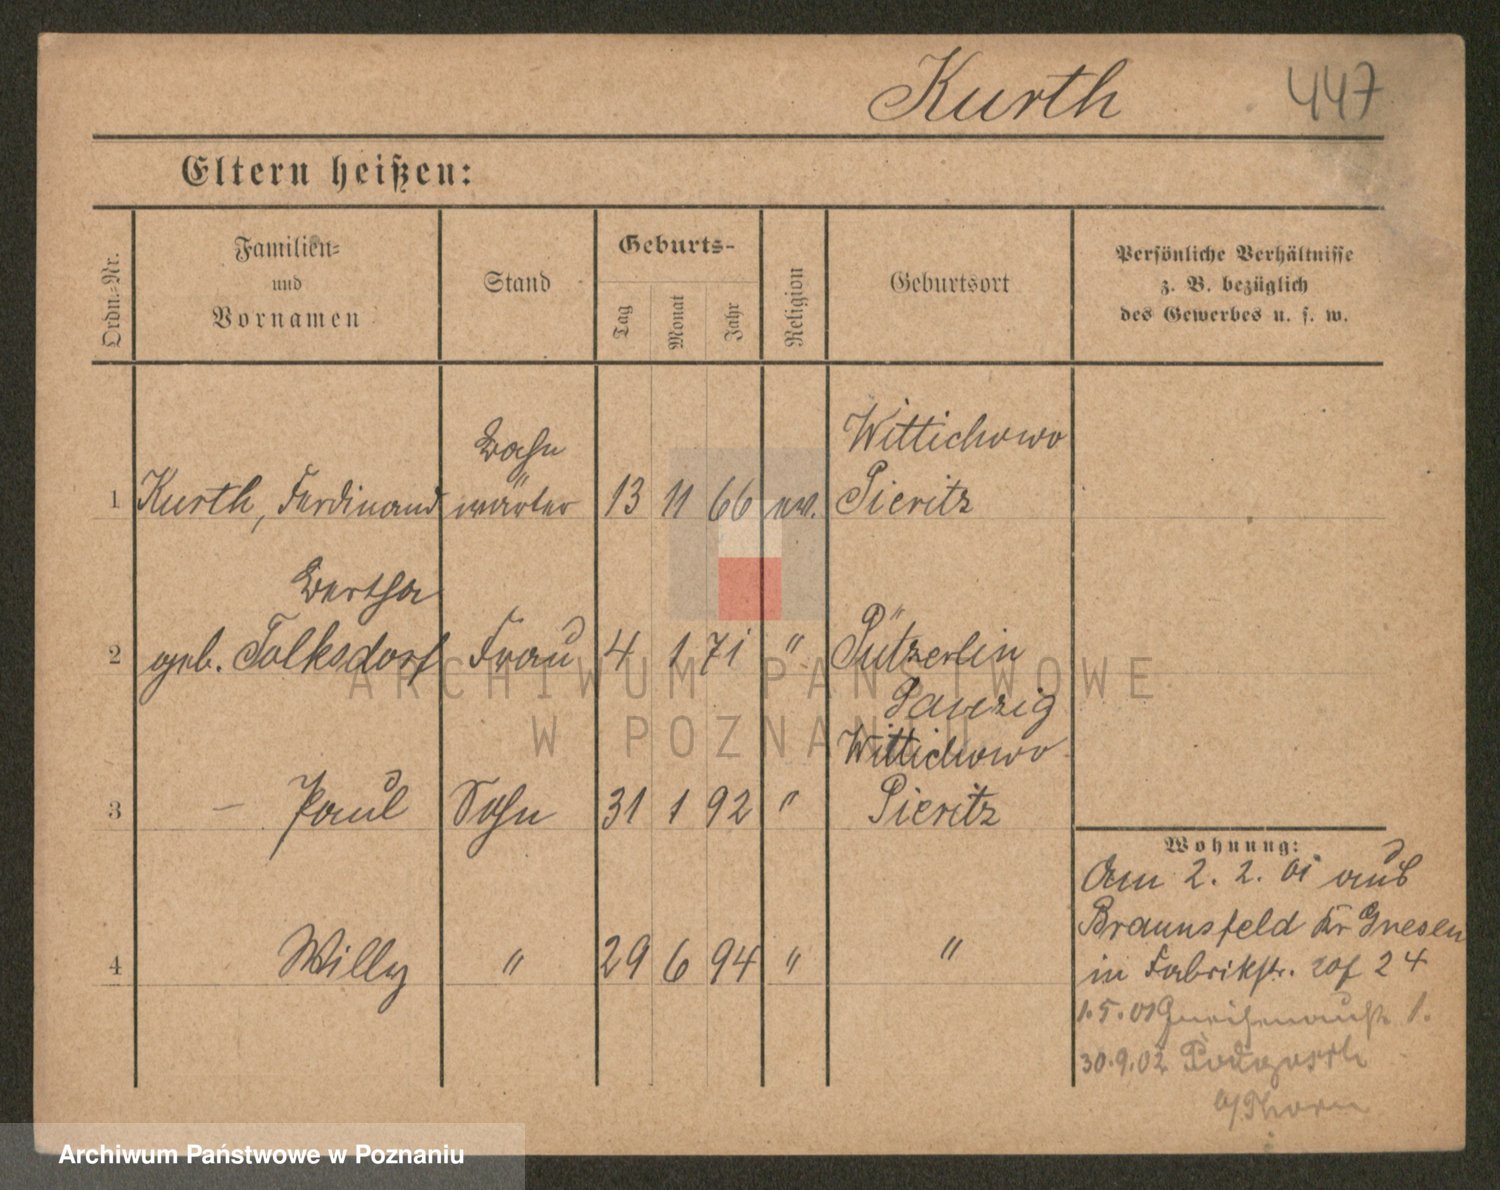 Kurth 447
Eltern heißen:
Ordn.-Nr.
Familien-
und
Vornamen
Stand
Geburts-
Tag
Monat
Jahr
Religion
Geburtsort
Persönliche Verhältnisse
z. B. bezüglich
des Gewerbes u. s. w.
Bahn Wittichowo
1 Kurth, Ferdinand wärter 13 11 66 ev. Pieritz
Bertha
2 geb. Tolksdorf Frau 4 1 71 " Pützerlin
Danzig
Wittichowo
3 – Paul Sohn 31 1 92 " Pieritz
4 Willy " 29 6 94 " "
Wohnung:
Am 2. 2. 01 aus
Braunsfeld Kr Gnesen
in Fabrikstr. 24
1.5.01 Gneisenaustr 1.
30.9.02 Podgorth
b/Thorn
ARCHIWUM PAŃSTWOWE
W POZNANIU
Archiwum Państwowe w Poznaniu